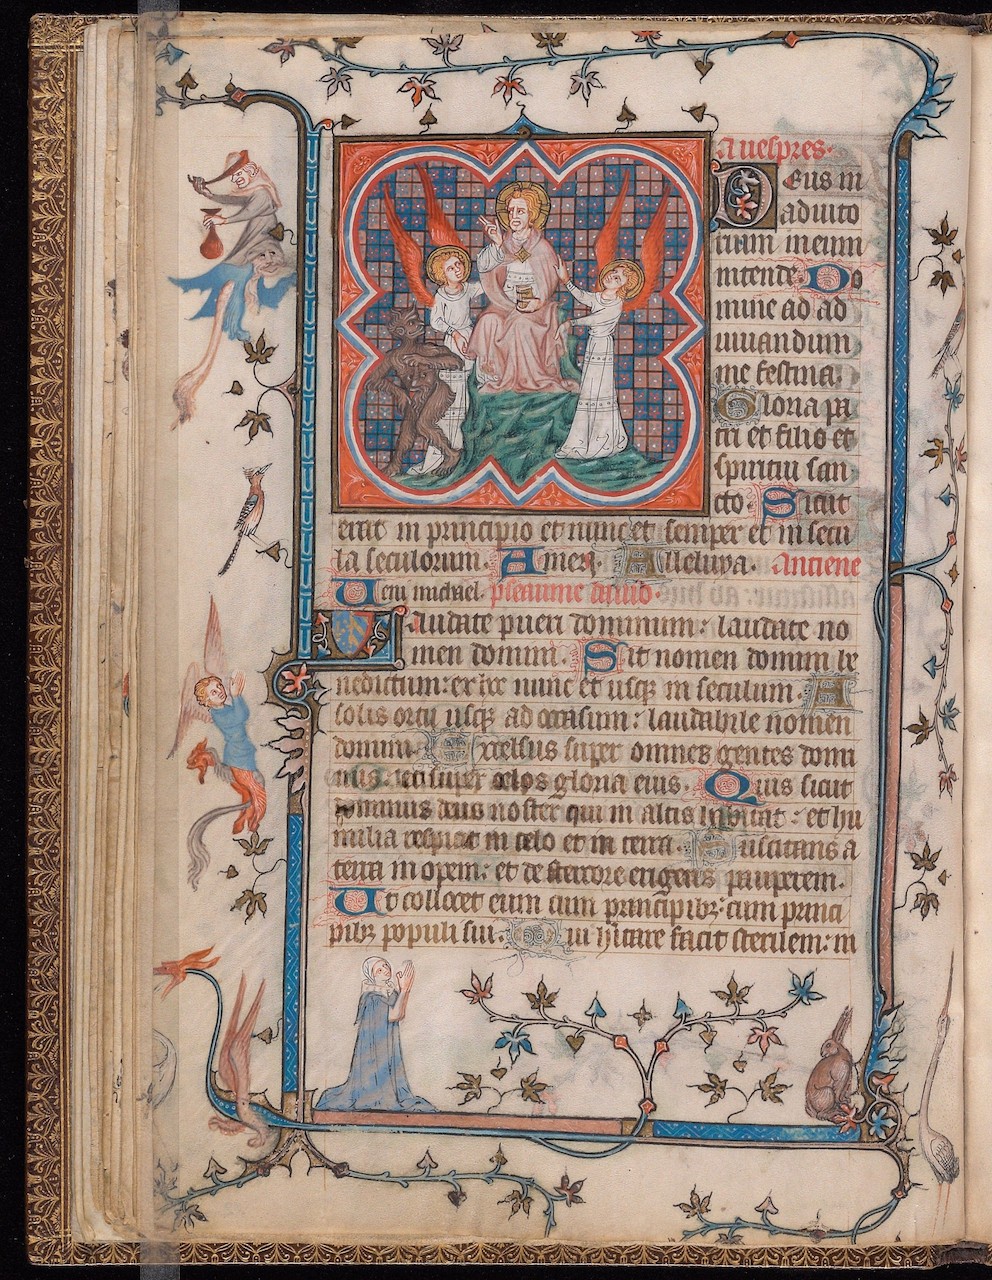 A uespres.
Deus in
adiuto
rium meum
intende Do
mine ad ad
iuuandum
me festina.
Gloria pa
tri et filio et
spiritui san
cto. Sicut
erat in principio et nunc et semper et in secu
la seculorum. Amen. Alleluya. Antiene
Ueni michael. pseaume dauid.
Laudate pueri dominum: laudate no
men domini. Sit nomen domini be
nedictum: ex hoc nunc et usqꝫ in seculum. A
solis ortu usqꝫ ad occasum: laudabile nomen
domini. Excelsus super omnes gentes domi
nus: et super celos gloria eius. Quis sicut
dominus deus noster qui in altis habitat: et hu
milia respicit in celo et in terra. Suscitans a
terra inopem: et de stercore erigens pauperem.
Ut collocet eum cum principibꝫ: cum princi
pibꝫ populi sui. Qui hitare facit sterilem: in